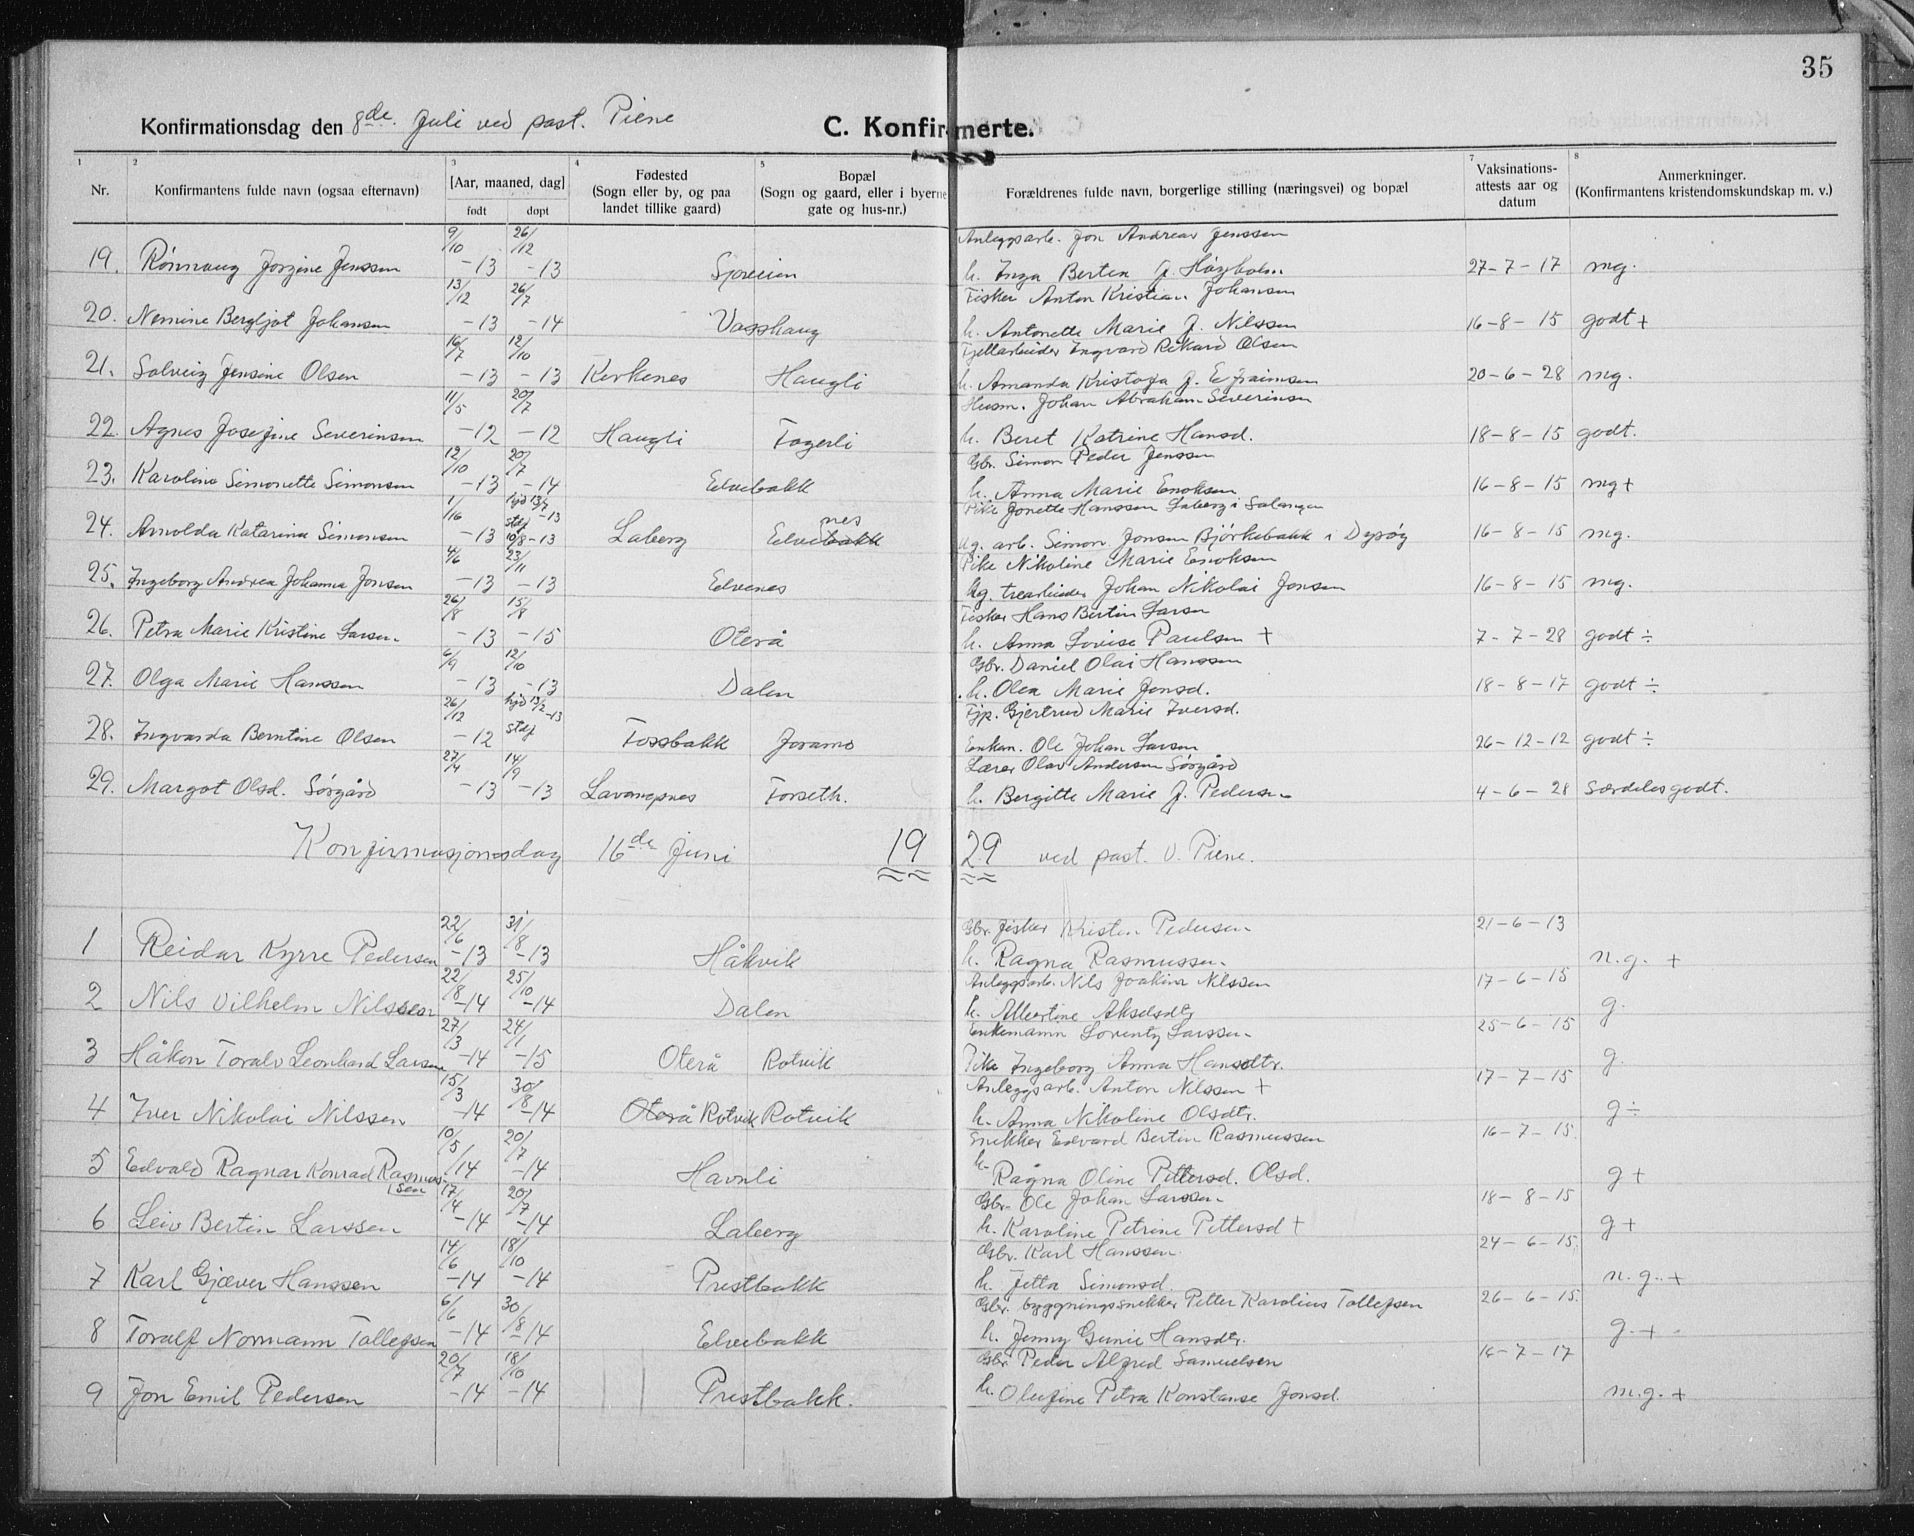 35
Konfirmationsdag den 8de. Juli ved past. Piene
C. Konfirmerte.
1 2 3 4 5 7 8
Nr. Konfirmantens fulde navn (ogsaa efternavn) [Aar, maaned, dag] født døpt Fødested (Sogn eller by, og paa landet tillike gaard) Bopæl (Sogn og gaard, eller i byerne gate og hus-nr.) Forældrenes fulde navn, borgerlige stilling (næringsvei) og bopæl Vaksinations-attests aar og datum Anmerkninger. (Konfirmantens kristendomskundskap m. v.)
9/10 26/12 Anleggsarb. Jon Andreas Jenssen
19. Rønnaug Jorgine Jenssen -13 -13 Sjøveien h. Inga Bertea J. Høgholm 27-7-17 mg.
13/12 26/7 Fisker Anton Kristian Johansen
20. Nemine Bergljot Johansen -13 -14 Vasshaug h. Antonette Marie J. Nilssen 16-8-15 godt +
16/7 12/10 Fjellarbeider Ingvard Rikard Olsen
21. Solveig Jensine Olsen -13 -13 Kirkenes Haugli h. Amanda Kristofa J. Efraimsen 20-6-28 mg.
11/5 20/7 Husm. Johan Abraham Severinsen
22. Agnes Josefine Severinsen -12 -12 Haugli Fagerli h. Beret Katrine Hansd. 18-8-15 godt.
12/10 20/7 Gbr. Simon Peder Jenssen
23. Karoline Simonette Simonsen -13 -14 Elvebakk h. Anna Marie Enoksen 16-8-15 mg +
1/16 hjd 13/7 -13 Pike Jonette Hanssen Laberg i Salangen
24. Arnolda Katarina Simonsen -13 stdf 10/8-13 Laberg Elvebakk nes Ug. arb. Simon Jonsen Bjørkebakk i Dyrøy 16-8-15 mg.
4/6 23/11 Pike Nikoline Marie Enoksen
25. Ingeborg Andrea Johanna Jonsen -13 -13 Elvenes Ug. trearbeider Johan Nikolai Jonsen 16-8-15 mg.
26/8 15/8 Fisker Hans Bertin Larsen
26. Petra Marie Kristine Larsen. -13 -15 Oterå h. Anna Lovise Paulsen + 7-7-28 godt ÷
6/9 12/10 Gbr. Daniel Olai Hanssen
27. Olga Marie Hanssen -13 -13 Dalen h. Olea Marie Jonsd. 18-8-17 godt ÷
26/12 hjd 13/2 -13 Fjp. Gjertrud Marie Iversd.
28. Ingvarda Berntine Olsen -12 stdf Fossbakk Joramo Enkem. Ole Johan Larsen 26-12-12 godt ÷
27/4 14/9 Lærer Olav Andersen Sørgård
29. Margot Olsd. Sørgård -13 -13 Lavangsnes Forseth. h. Bergitte Marie J. Pedersen 4-6-28 Særdeles godt.
Konfirmasjonsdag 16de Juni 1929 ved past. O. Piene.
22/6 31/8 Gbr. fisker Kristen Pedersen 21-6-13
1 Reidar Kyrre Pedersen -13 -13 Håkvik h. Ragna Rasmussen. n.g. +
22/8 25/10 Anleggsarb. Nils Joakim Nilssen 17-6-15
2 Nils Vilhelm Nilssen -14 -14 Dalen h. Albertine Akselsdtr g.
27/3 24/1 Enkemann Lorentz Larssen 25-6-15
3 Håkon Toralv Leonhard Larsen -14 -15 Oterå Rotvik Pike Ingeborg Anna Hansdtr. g.
15/3 30/8 Anleggsarb. Anton Nilssen + 17-7-15
4 Iver Nikolai Nilssen -14 -14 Oterå Rotvik Rotvik h. Anna Nikoline Olsdtr. g ÷
10/5 20/7 Snekker Edvard Bertin Rasmussen 16-7-15.
5 Edvald Ragnar Konrad Rasmussen /14 -14 Havnli h. Ragna Oline Pettersd. Olsd. g +
17/4 20/7 Gbr. Ole Johan Larssen 18-8-15
6 Leiv Bertin Larssen -14 -14 Laberg h. Karoline Petrine Pettersd + g +
14/6 18/10 Gbr. Karl Hanssen. 24-6-15.
7 Karl Gjæver Hanssen -14 -14 Prestbakk h. Jetta Simonsd. n.g. +
6/6 30/8 Gbr. byggningssnekker Petter Karolius Tollefsen 26-6-15.
8 Toralf Normann Tollefsen -14 -14 Elvebakk h. Jenny Gunie Hansdtr. g. +
20/7 18/10 Gbr. Peder Alfred Samuelsen 16-7-17
9 Jon Emil Pedersen -14 -14 Prestbakk. h. Olufine Petra Konstanse Jonsd. m.g. +